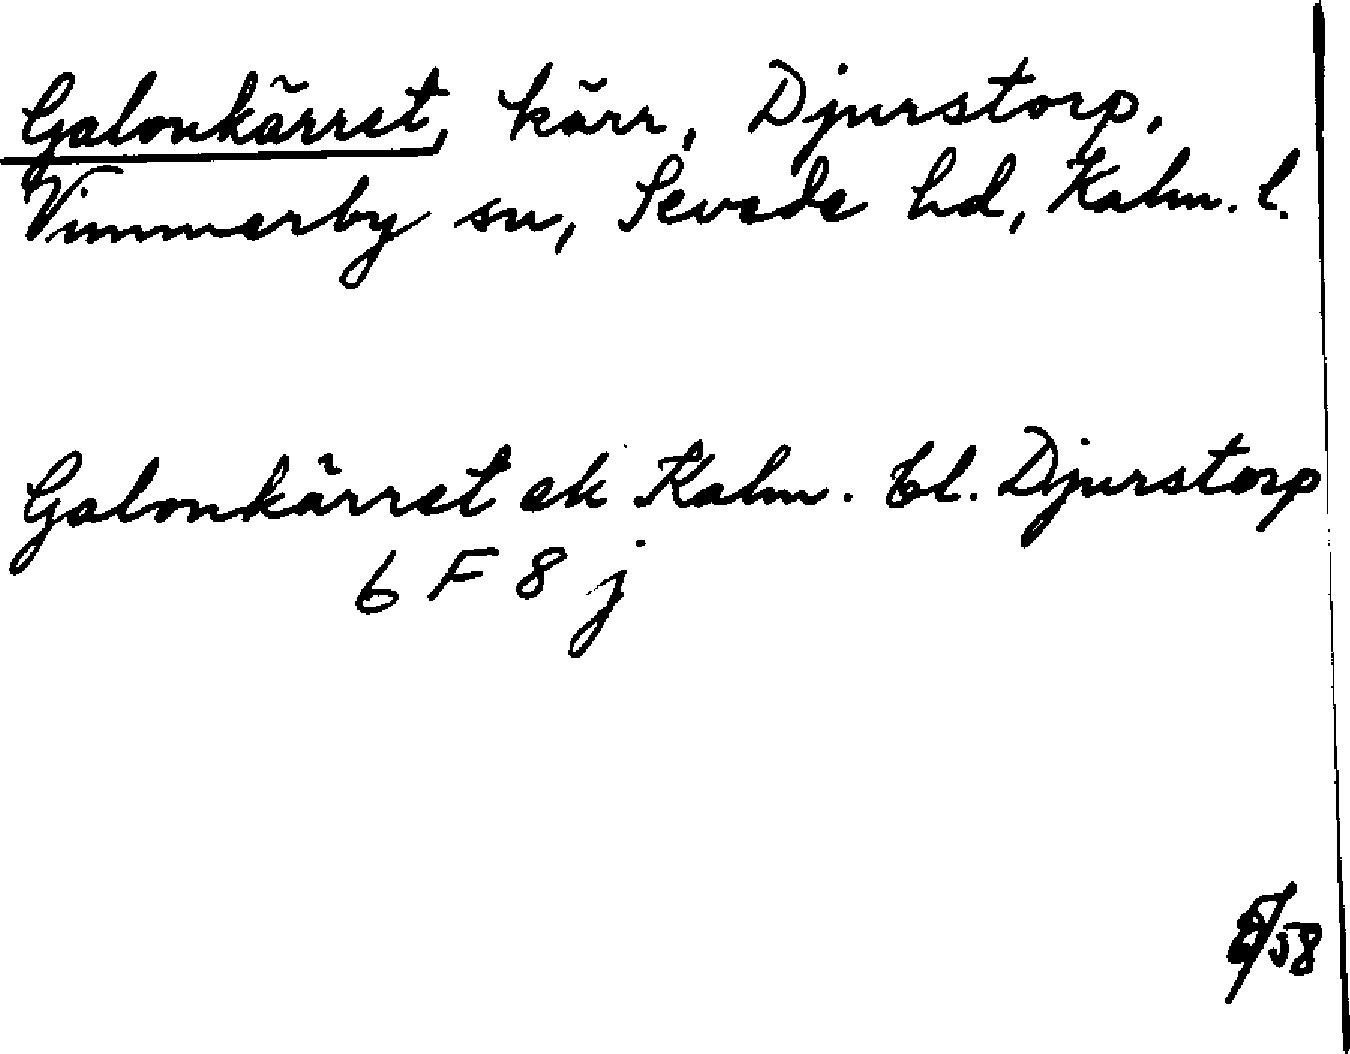 Galonkärret, kärr, Djurstorp,
Vimmerby sn, Sevede hd, Kalm. l.
Galonkärret ek Kalm. bl. Djurstorp
6 F 8 j